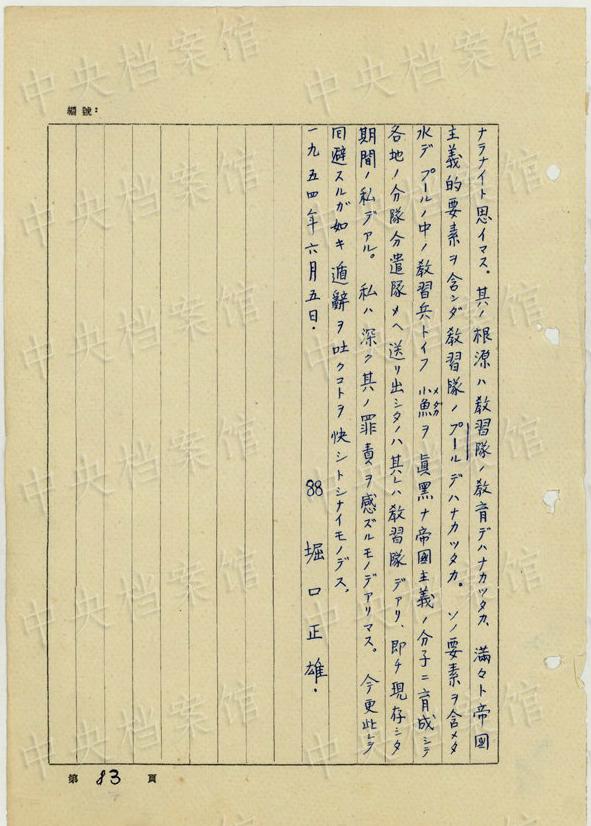 編號：
ナラナイト思イマス。其ノ根源ハ教習隊ノ教育デハナカツタカ、満々ト帝國
主義的要素ヲ含ンダ教習隊ノプールデハナカツタカ。ソノ要素ヲ含メタ
水デプールノ中ノ教習兵トイフ小魚ヲ眞黒ナ帝國主義ノ分子ニ育成シテ
メダカ
各地ノ分隊分遣隊ヘ送リ出シタノハ其レハ教習隊デアリ、即チ現存シタ
期間ノ私デアル。私ハ深ク其ノ罪責ヲ感ズルモノデアリマス。今更此レヲ
回避スルガ如キ遁辭ヲ吐クコトヲ快シトシナイモノデス。
一九五四年六月五日.
88 堀口正雄.
第 83 頁
中央档案馆